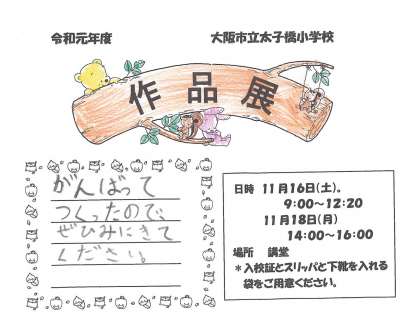 令和元年度
大阪市立太子橋小学校
作品展
がんばって
つくったので、
ぜひみにきて
ください。
日時 11月16日(土)。
9:00～12:20
11月18日(月)
14:00～16:00
場所 講堂
＊入校証とスリッパと下靴を入れる
袋をご用意ください。